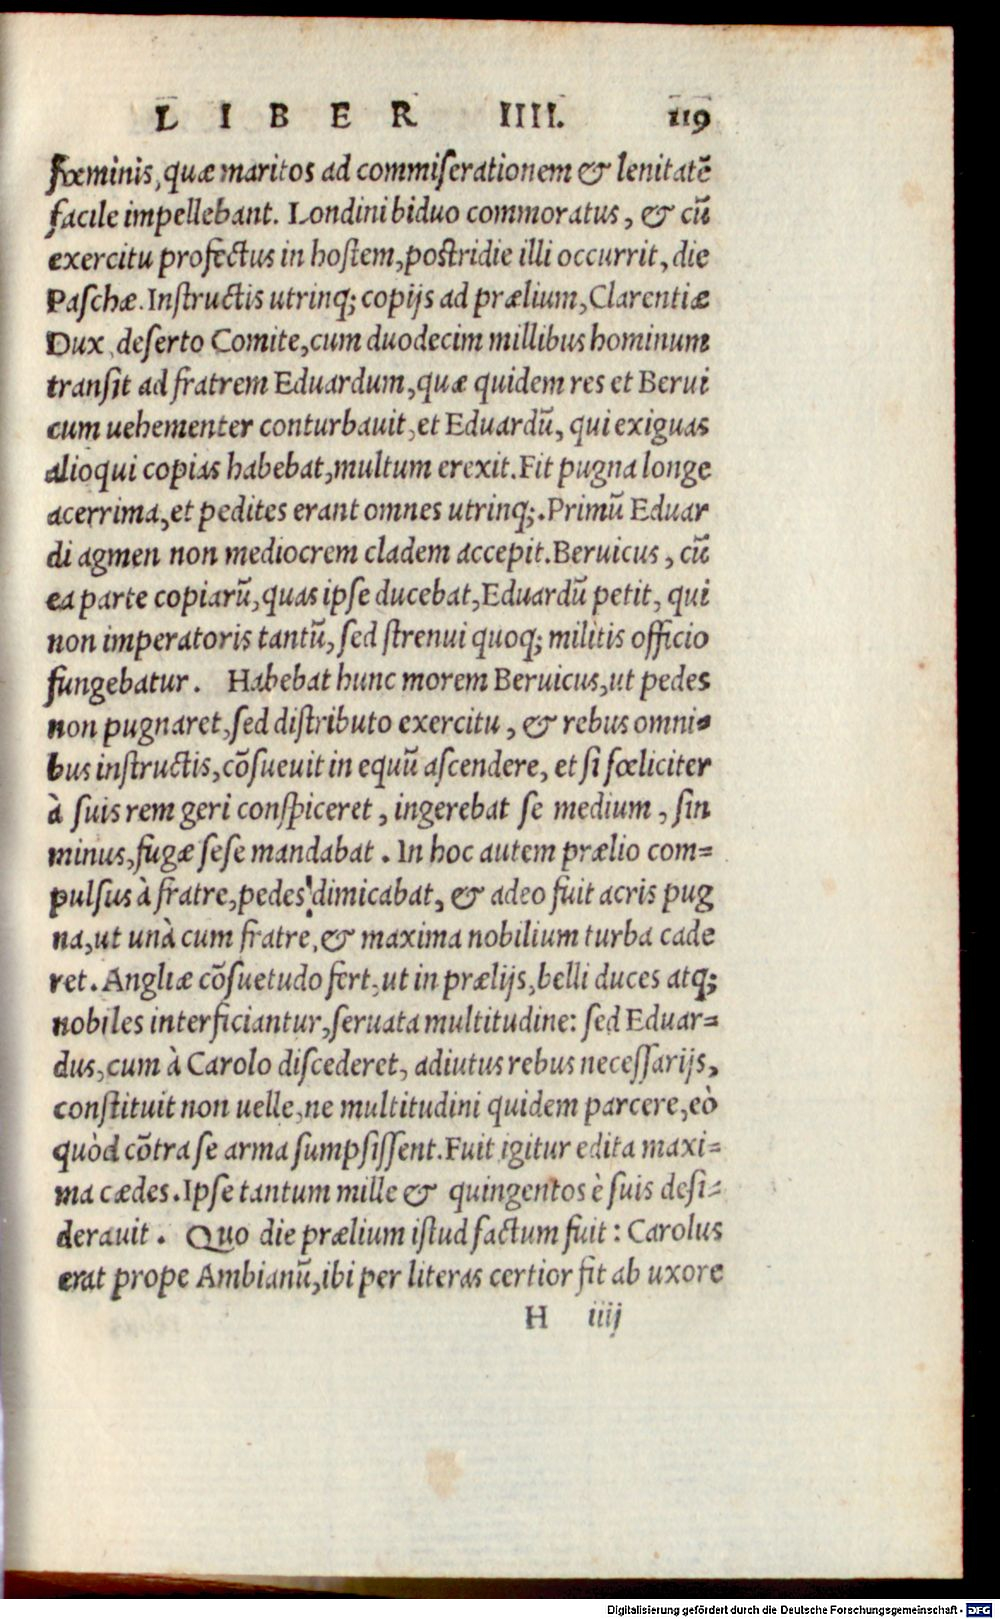 LIBER IIII. 119
fœminis, quæ maritos ad commiserationem & lenitatē
facile impellebant. Londini biduo commoratus, & cū
exercitu profectus in hostem, postridie illi occurrit, die
Paschæ. Instructis utrinq; copijs ad prælium, Clarentiæ
Dux, deserto Comite, cum duodecim millibus hominum
transit ad fratrem Eduardum, quæ quidem res et Berui
cum uehementer conturbauit, et Eduardū, qui exiguas
alioqui copias habebat, multum erexit. Fit pugna longe
acerrima, et pedites erant omnes utrinq;. Primū Eduar
di agmen non mediocrem cladem accepit. Beruicus, cū
ea parte copiarū, quas ipse ducebat, Eduardū petit, qui
non imperatoris tantū, sed strenui quoq; militis officio
fungebatur. Habebat hunc morem Beruicus, ut pedes
non pugnaret, sed distributo exercitu, & rebus omni-
bus instructis, cōsueuit in equū ascendere, et si fœliciter
à suis rem geri conspiceret, ingerebat se medium, sin
minus, fugæ sese mandabat. In hoc autem prælio com-
pulsus à fratre, pedes dimicabat, & adeo fuit acris pug
na, ut unà cum fratre, & maxima nobilium turba cade
ret. Angliæ cōsuetudo fert, ut in prælijs, belli duces atq;
nobiles interficiantur, seruata multitudine: sed Eduar-
dus, cum à Carolo discederet, adiutus rebus necessarijs,
constituit non uelle, ne multitudini quidem parcere, eò
quòd cōtra se arma sumpsissent. Fuit igitur edita maxi-
ma cædes. Ipse tantum mille & quingentos è suis desi-
derauit. Quo die prælium istud factum fuit: Carolus
erat prope Ambianū, ibi per literas certior fit ab uxore
H iiij
Digitalisierung gefördert durch die Deutsche Forschungsgemeinschaft - DFG